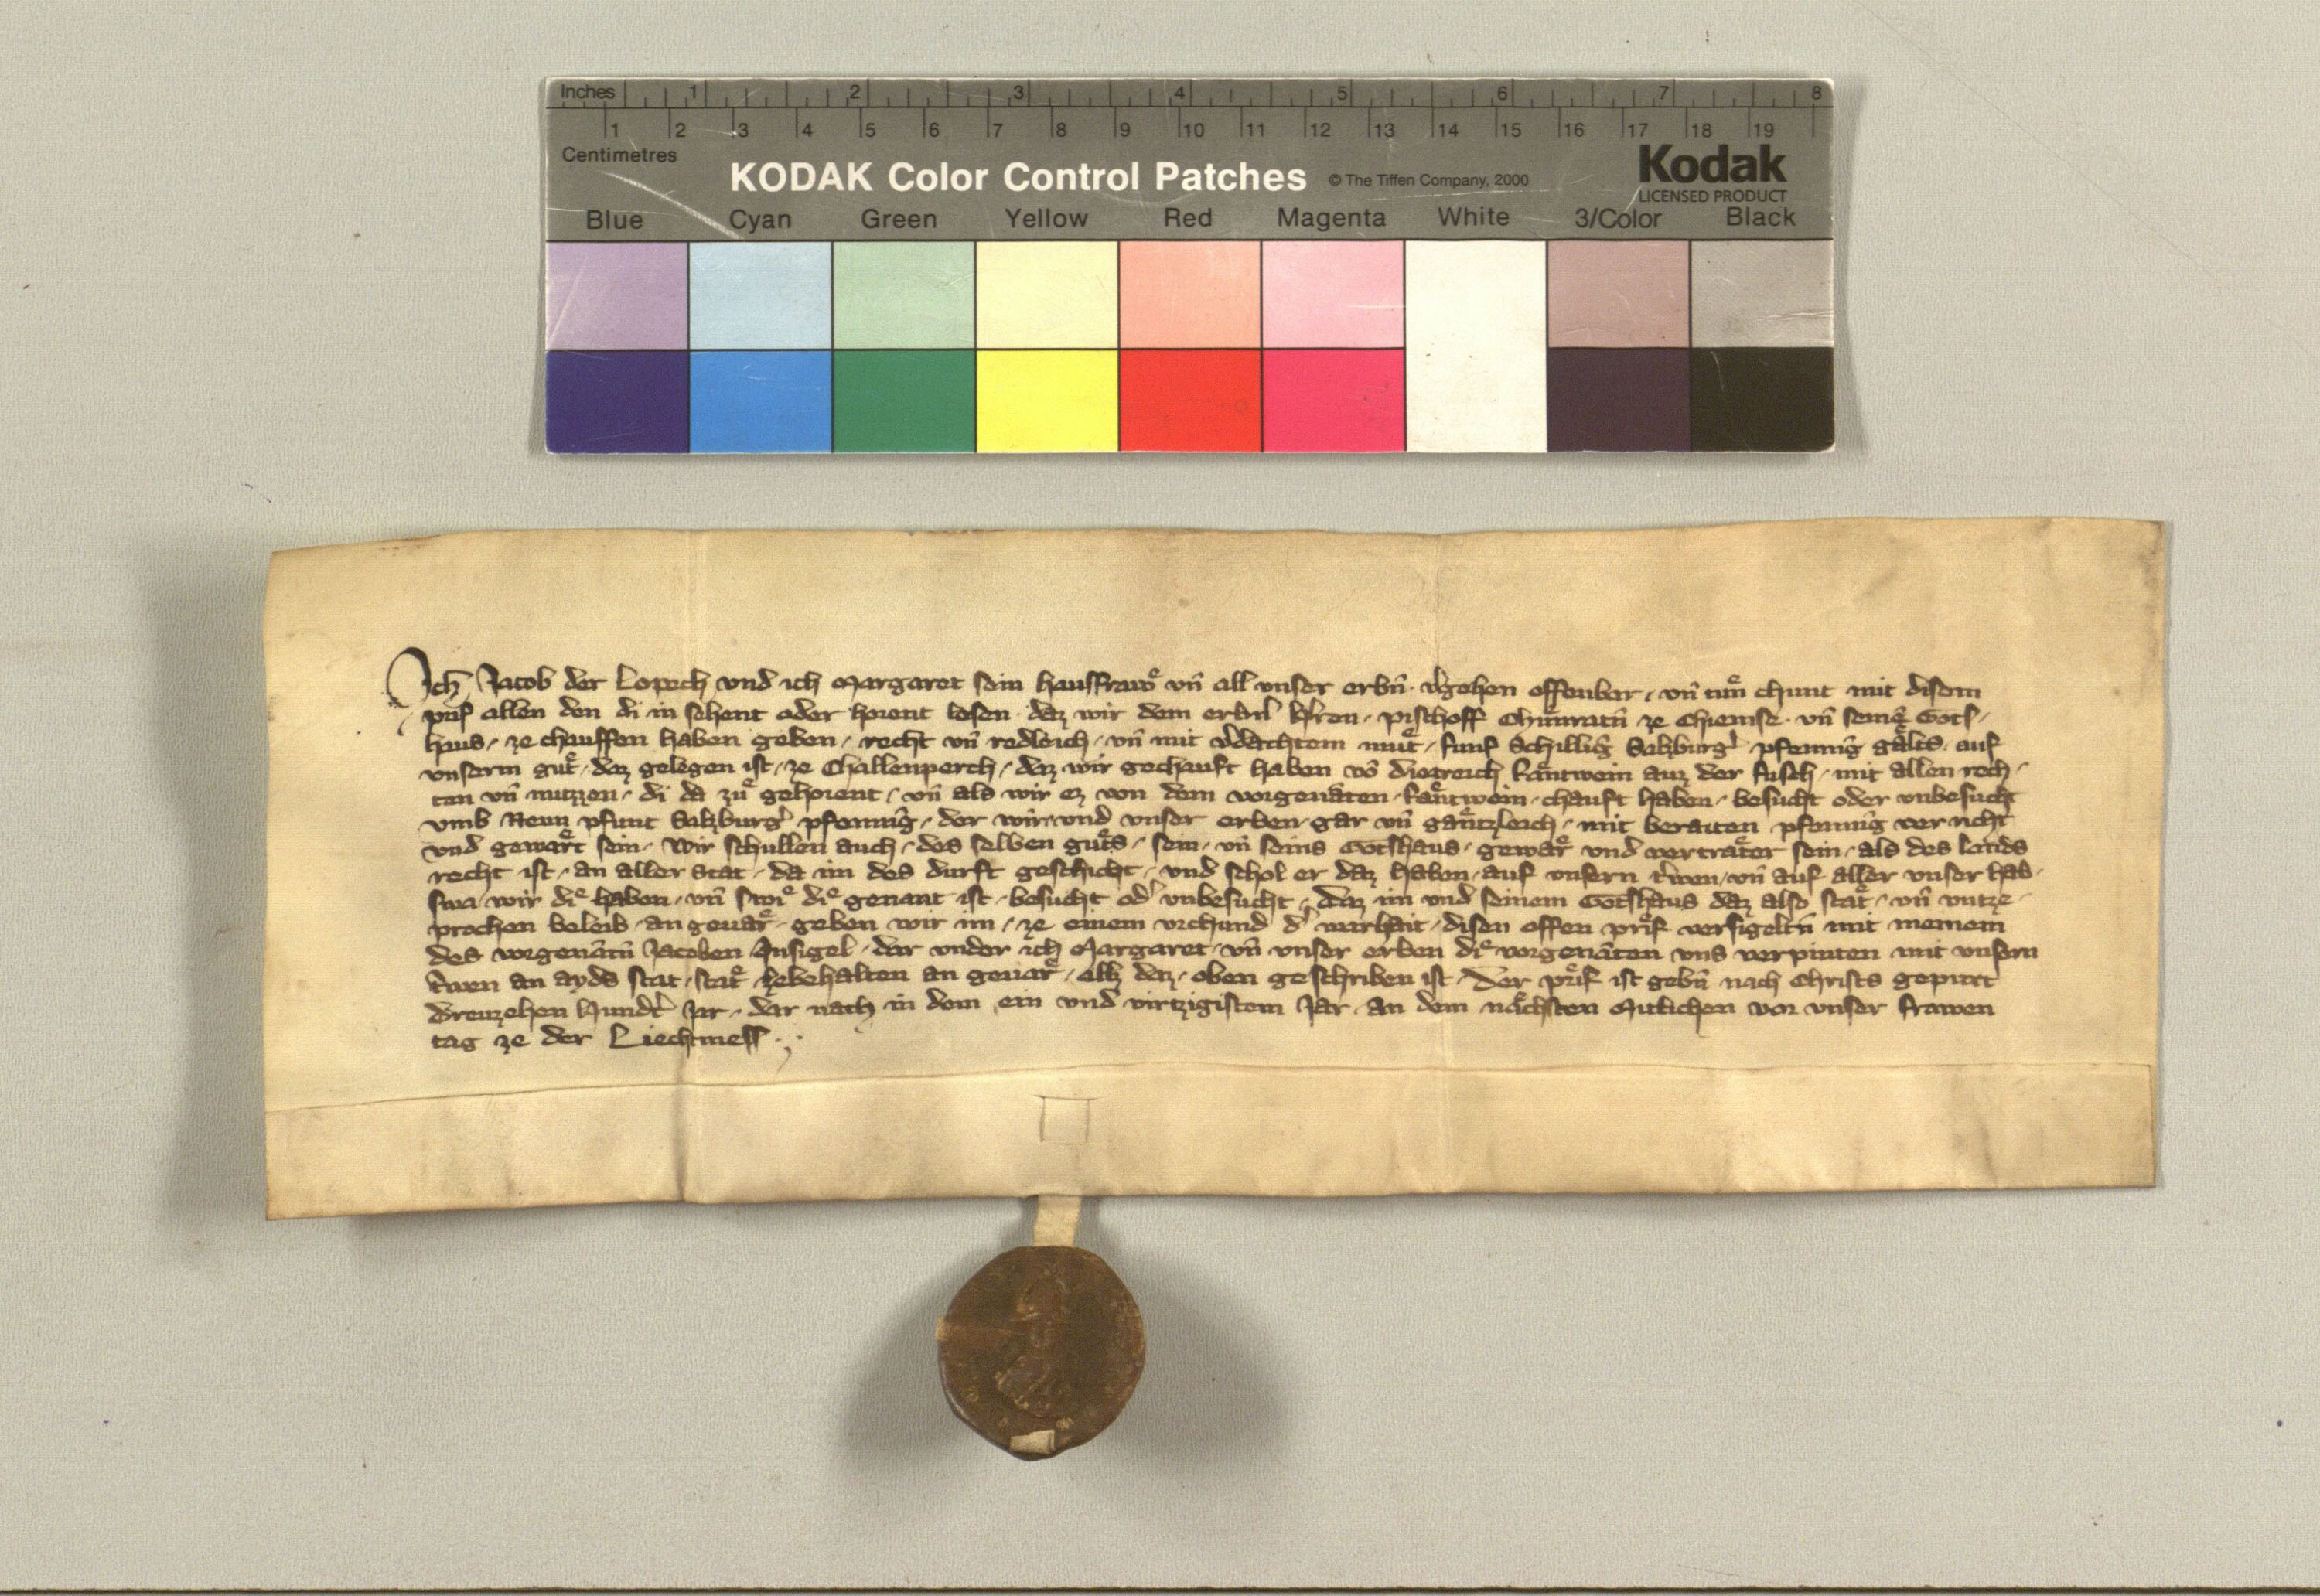 Inches 1 2 3 4 5 6 7 8
1 2 3 4 5 6 7 8 9 10 11 12 13 14 15 16 17 18 19
Centimetres
KODAK Color Control Patches © The Tiffen Company, 2000 Kodak
LICENSED PRODUCT
Blue Cyan Green Yellow Red Magenta White 3/Color Black
Ich Jacob der Lopech vnd ich Margaret sein hausfrawͤ vn̄ all vnser erbn̄ v̾gehen offenbar, vn̄ tuͤn chunt mit disem
prif allen den di in sehent oder horent lesen daz wir dem pischoff Chuͤnratn̄ ze Chiemse vn̄ Gots
haus, ze chauffen haben geben, recht vn̄ redleich, vn̄ mit v̾dachtem muͤt, funf Schilling Salzburg̾ pfenning gaͤlts auf
vnserm guͤt, daz gelegen ist, ze Challenperch, daz wir gechauft haben vō Dietreich auz der fusch, mit allen rech
ten vn̄ nutzzen, di da zuͤ gehorent, vn̄ als wir ez von dem vorgenāten chauft haben, besucht oder vnbesucht
vmb Neun pfunt Salzburg̾ pfenning, der wir vnd vnser erben gar vn̄ gaͤntzleich, mit beraiten pfenning ver richt
vnd gewaͤrt sein, Wir schullen auch, des selben guͤts, sein, vn̄ seins Gotshaus, gewaͤr vnd vertraͤter sein, als des lands
recht ist, an aller stat, da im des durft geschicht, vnd schol er daz haben, auf vnsern tr̄wen, vn̄ auf aller vnser hab
swa wir diͤ haben, vn̄ swiͤ diͤ genant ist, besucht od̾ vnbesucht, Daz im vnd seinem Gotshaus daz also staͤt, vn̄ vntze
prochen beleib, an geuaͤr, geben wir im, ze einem vrchund d̾ warhait, disen offen priͤf versigeltn̄ mit meinem
des vorgenātn̄ Jacoben Insigel, dar vnder ich Margaret, vn̄ vnser erben diͤ vorgenāten vns verpinten mit vnsern
tr̄wen an ayds stat, staͤt zebehalten an geuaͤr, allz daz, oben geschriben ist, Der priͤf ist gebn̄ nach Christs gepurt
dreuzehen Hundt̾ Jar, dar nach in dem ein vnd virtzigistem Jar, an dem naͤchsten Mitichen vor vnser frawen
tag ze der Liechtmess